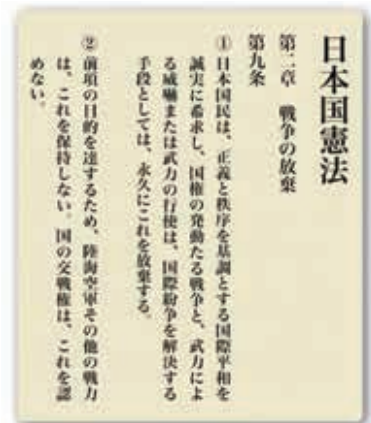 日本国憲法
第二章 戦争の放棄
第九条
① 日本国民は、正義と秩序を基調とする国際平和を
誠実に希求し、国権の発動たる戦争と、武力によ
る威嚇または武力の行使は、国際紛争を解決する
手段としては、永久にこれを放棄する。
② 前項の目的を達するため、陸海空軍その他の戦力
は、これを保持しない。国の交戦権は、これを認
めない。